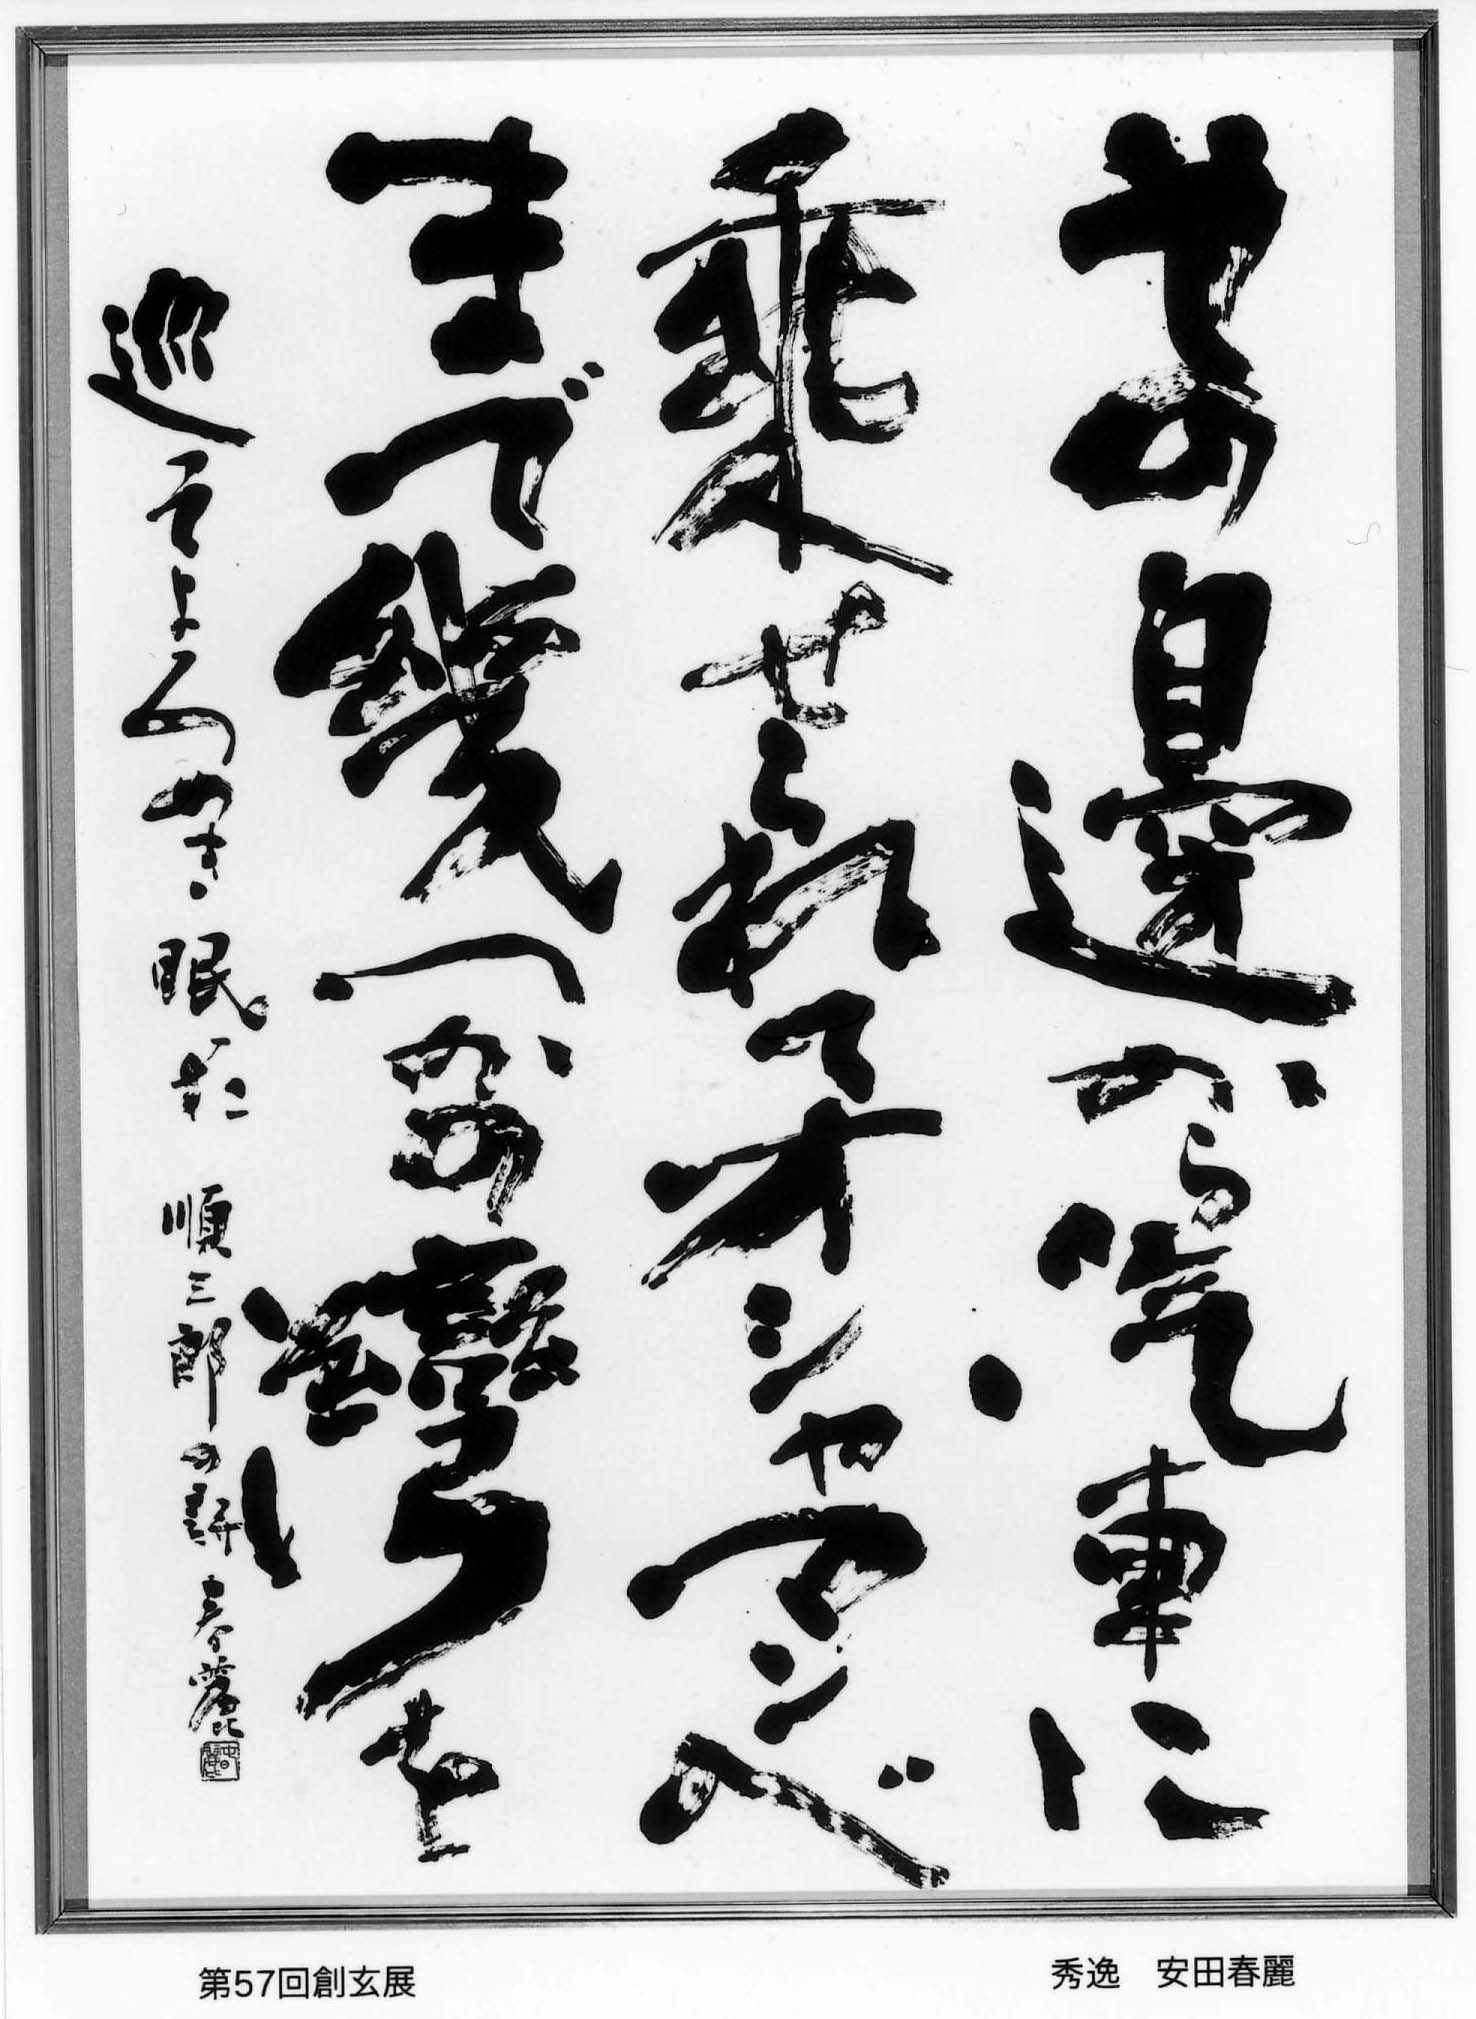 その邊から汽車に
乗せられてオシャマンベ
まで幾つかの灣を
巡 よろめき眠た 順三郎の詩 春麗
第57回創玄展
秀逸 安田春麗